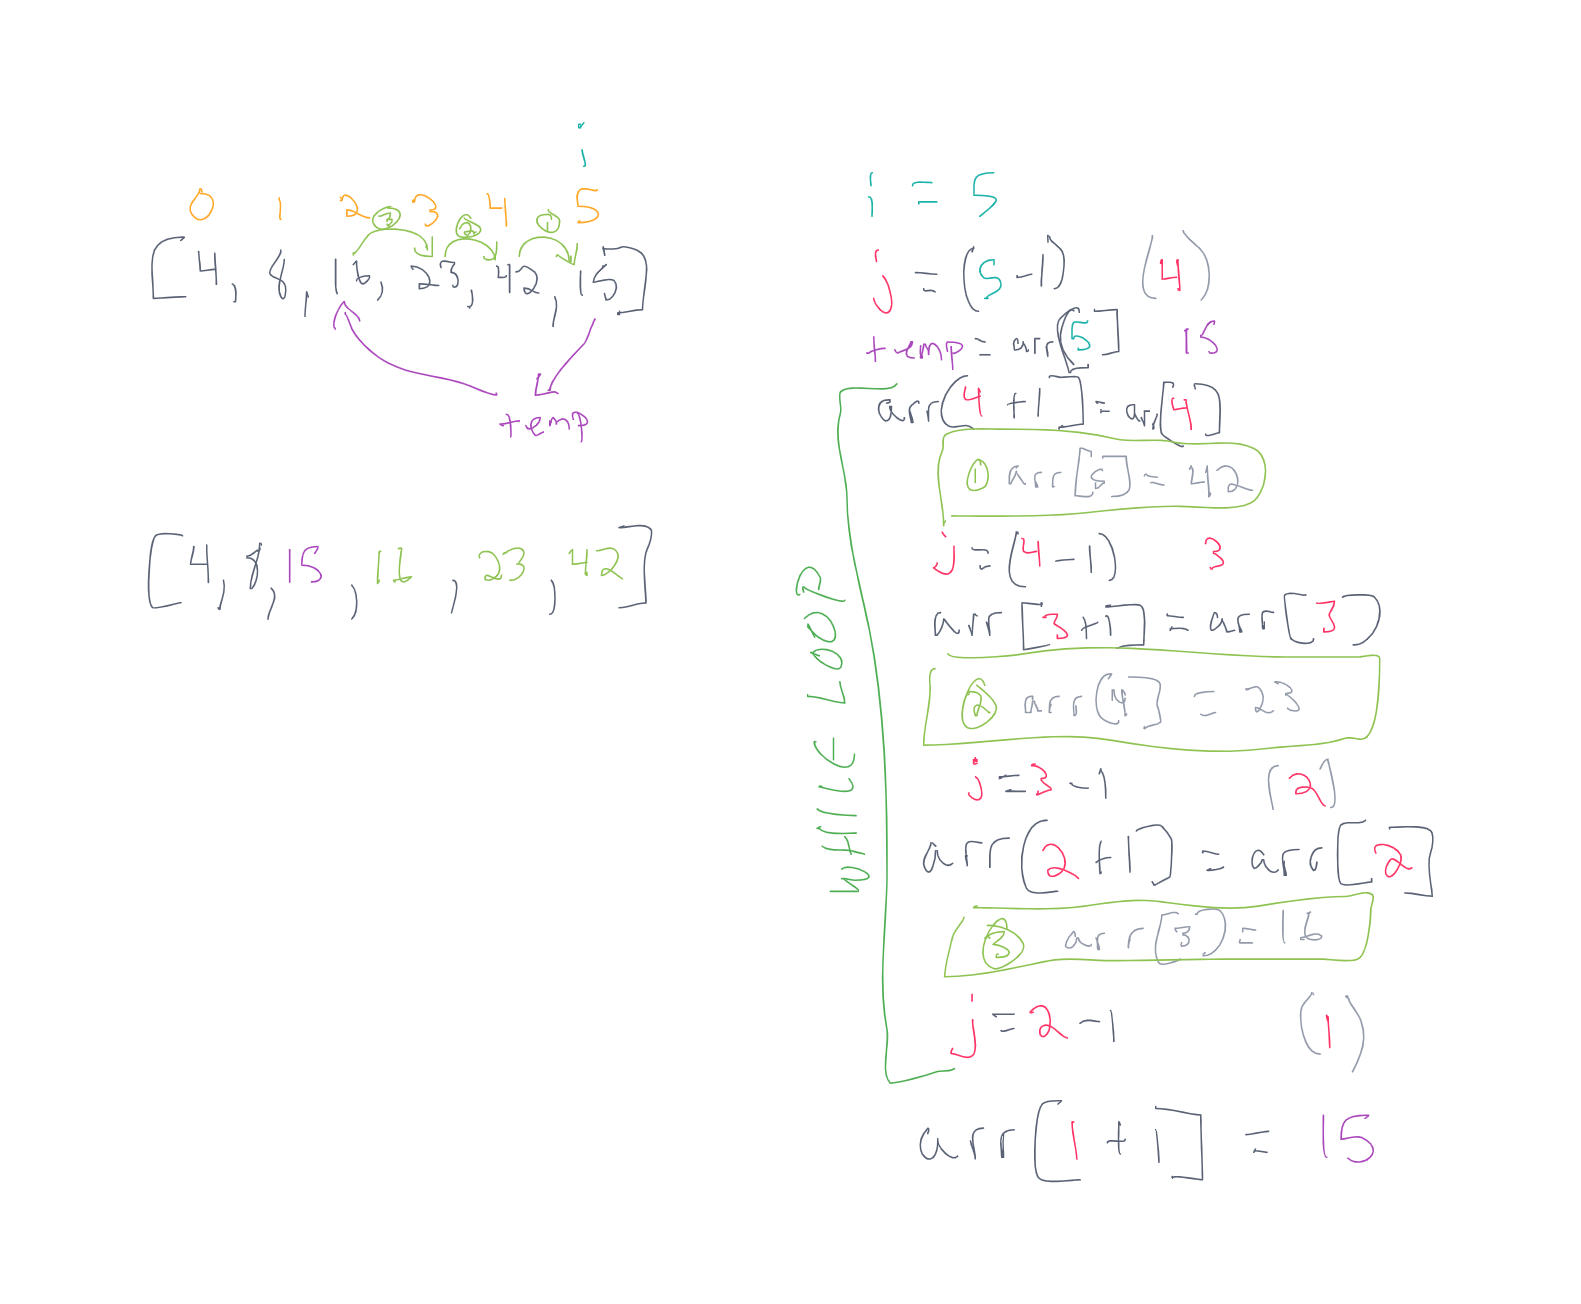 i
0 1 2 3 4 5
③ ② ①
[4, 8, 16, 23, 42, 15]
temp
[4, 8, 15, 16, 23, 42]
i = 5
j = (5-1) (4)
temp = arr[5] 15
arr[4+1] = arr[4]
① arr[5] = 42
j = (4-1) 3
arr[3+1] = arr[3]
② arr[4] = 23
j = 3-1 (2)
arr[2+1] = arr[2]
③ arr[3] = 16
j = 2-1 (1)
WHILE LOOP
arr[1+1] = 15